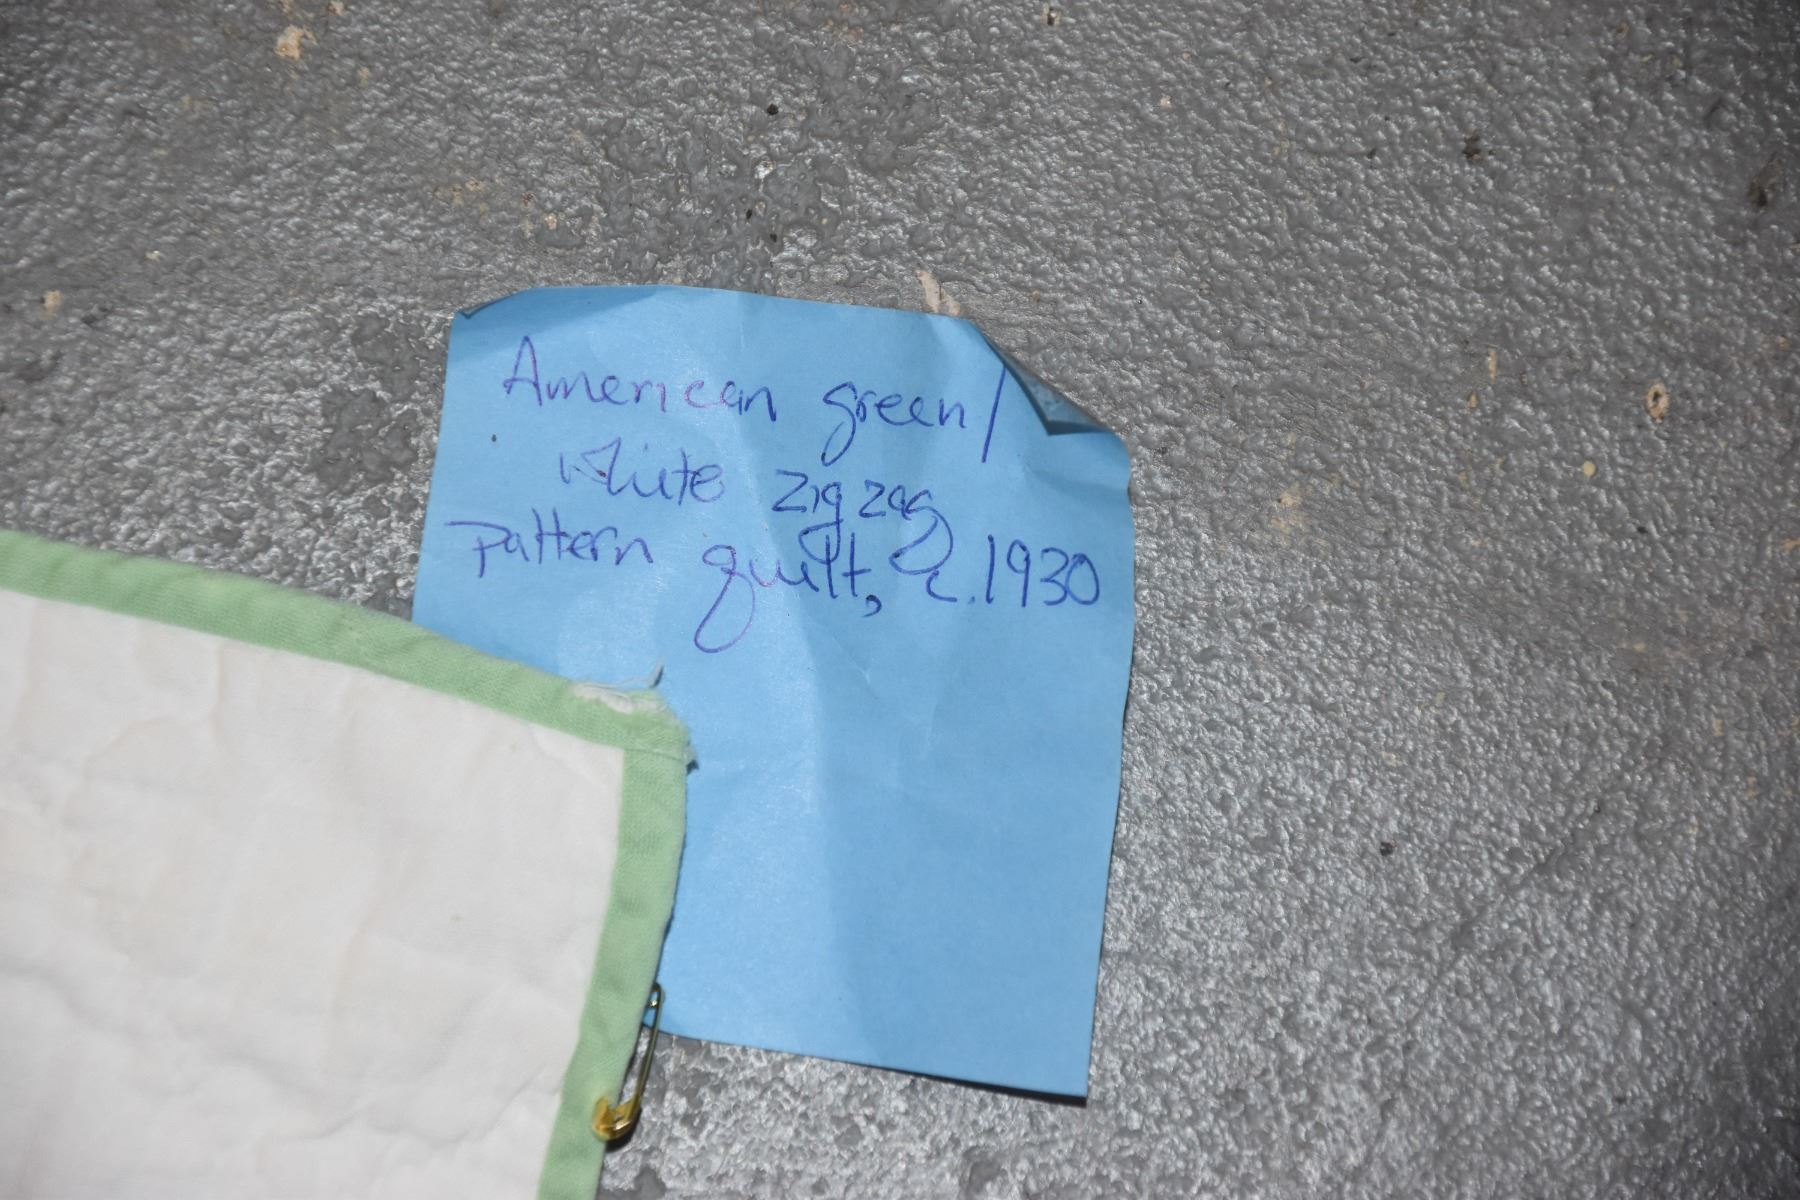 American green/
white zig zag
pattern quilt, c. 1930